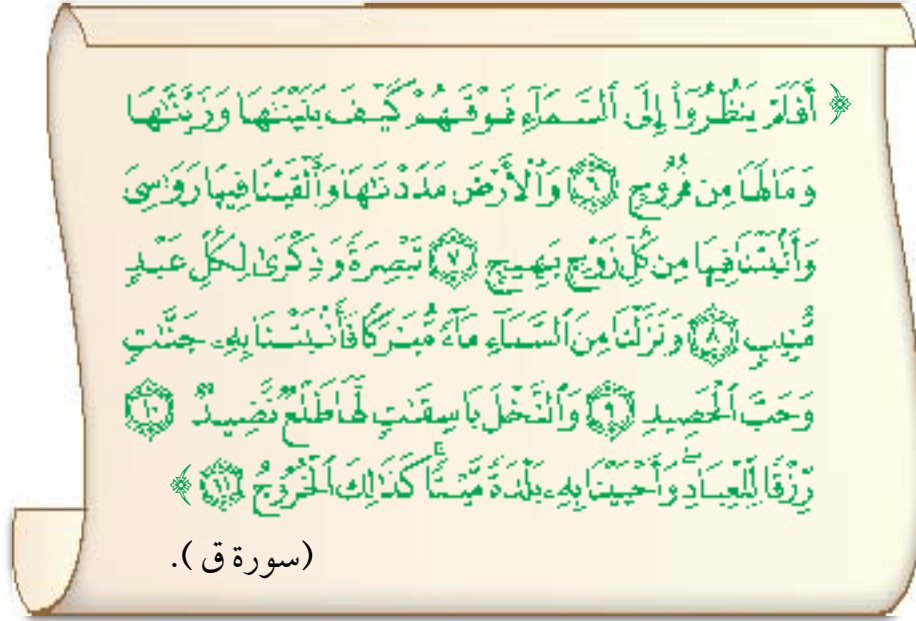 ﴿ أَفَلَمْ يَنظُرُوٓا۟ إِلَى ٱلسَّمَآءِ فَوْقَهُمْ كَيْفَ بَنَيْنَٰهَا وَزَيَّنَّٰهَا
وَمَا لَهَا مِن فُرُوجٍ ٦ وَٱلْأَرْضَ مَدَدْنَٰهَا وَأَلْقَيْنَا فِيهَا رَوَٰسِىَ
وَأَنۢبَتْنَا فِيهَا مِن كُلِّ زَوْجٍۭ بَهِيجٍ ٧ تَبْصِرَةً وَذِكْرَىٰ لِكُلِّ عَبْدٍ
مُّنِيبٍ ٨ وَنَزَّلْنَا مِنَ ٱلسَّمَآءِ مَآءً مُّبَٰرَكًا فَأَنۢبَتْنَا بِهِۦ جَنَّٰتٍ
وَحَبَّ ٱلْحَصِيدِ ٩ وَٱلنَّخْلَ بَاسِقَٰتٍ لَّهَا طَلْعٌ نَّضِيدٌ ١٠
رِّزْقًا لِّلْعِبَادِ ۖ وَأَحْيَيْنَا بِهِۦ بَلْدَةً مَّيْتًا ۚ كَذَٰلِكَ ٱلْخُرُوجُ ١١ ﴾
(سورة ق).